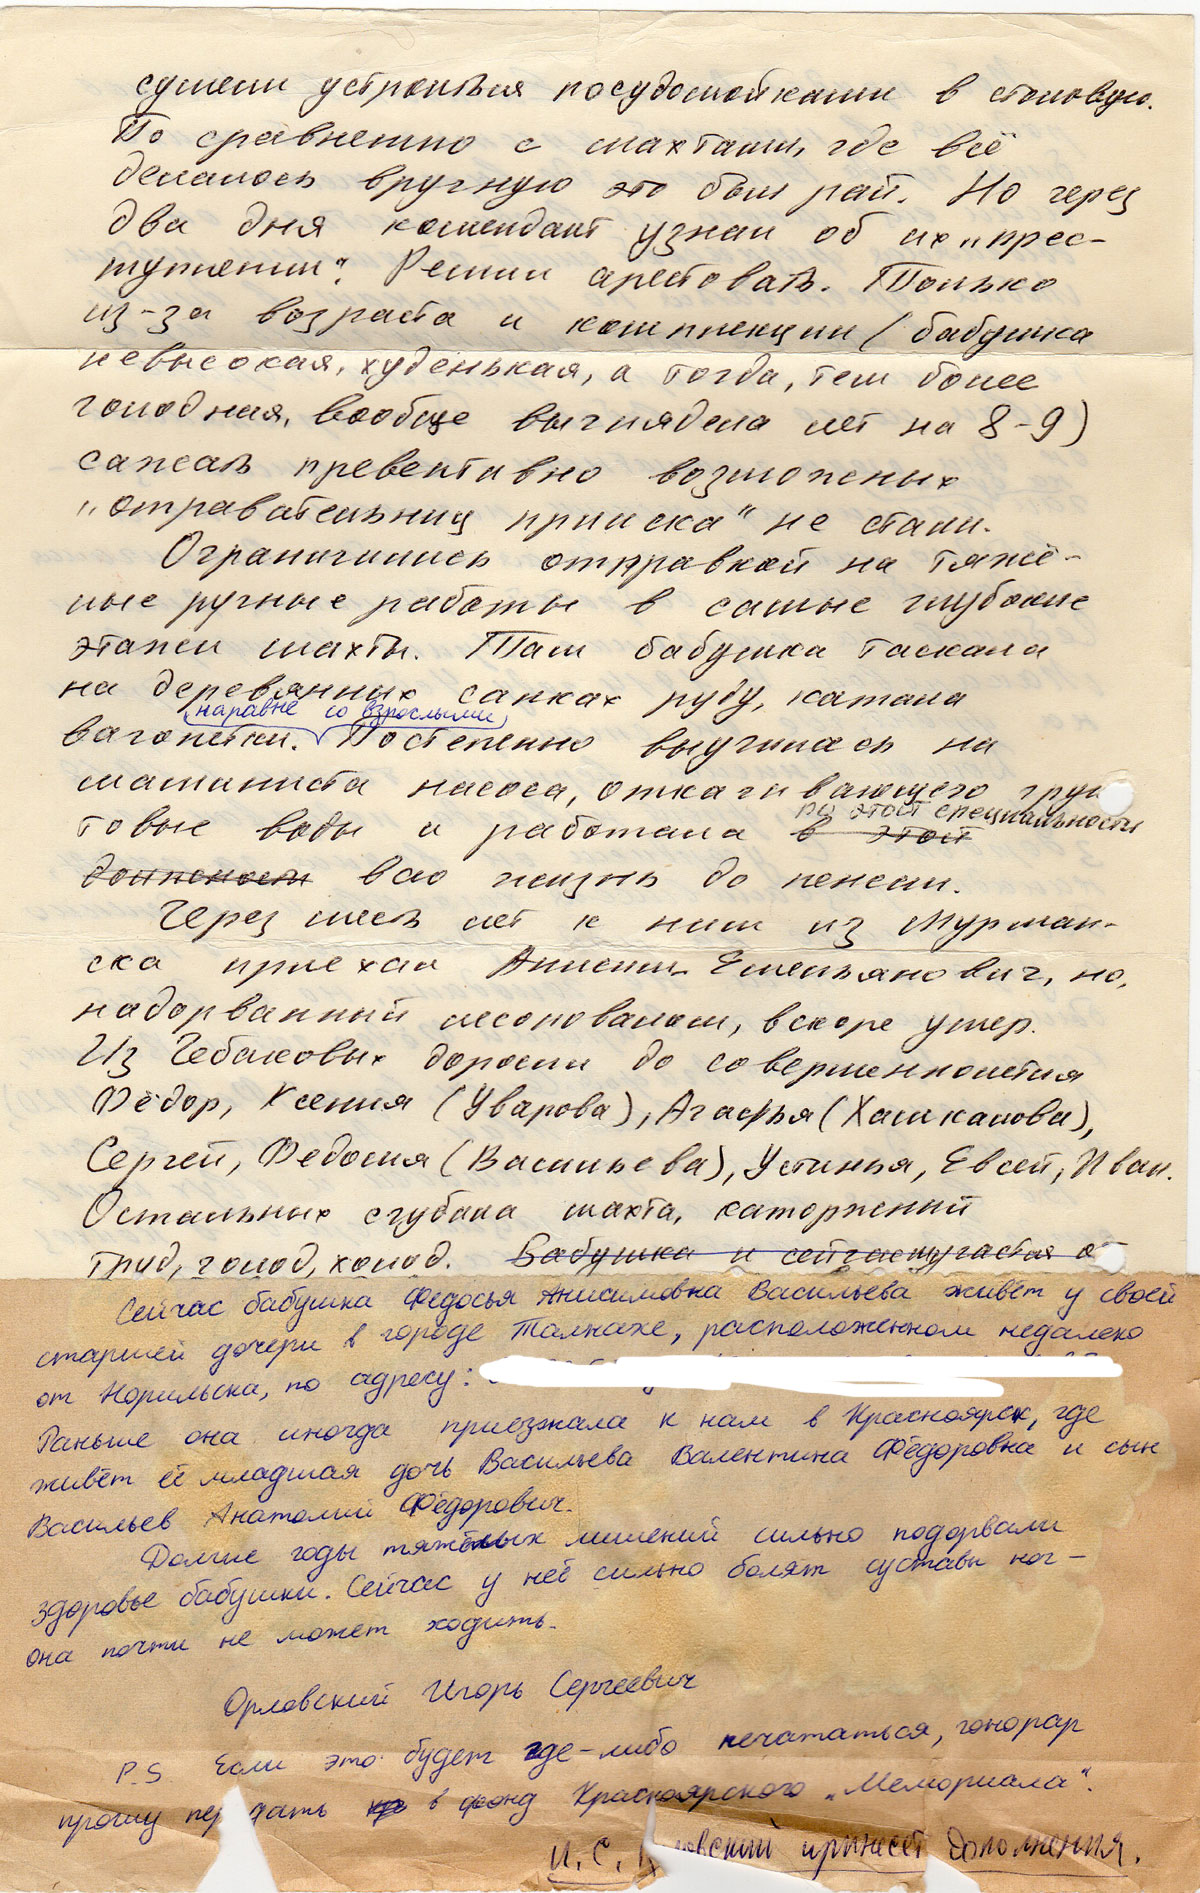 сумели устроиться посудомойками в столовую.
По сравнению с шахтами, где всё
делалось вручную это был рай. Но через
два дня комендант узнал об их „прес-
туплении“. Решил арестовать. Только
из-за возраста и комплекции (бабушка
невысокая, худенькая, а тогда, тем более
голодная, вообще выглядела лет на 8-9)
сажать превентивно возможных
„отравительниц прииска“ не стали.
Ограничились отправкой на тяжё-
лые ручные работы в самые глубокие
этажи шахты. Там бабушка таскала
на деревянных санках руду, катала
наравне со взрослыми
вагонетки. Постепенно выучилась на
машиниста насоса, откачивающего грун
по этой специальности
товые воды и работала в этой
должности всю жизнь до пенсии.
Через шесть лет к ним из Мурман-
ска приехал Анисим Емельянович, но,
надорванный лесоповалом, вскоре умер.
Из Чебаковых доросли до совершеннолетия
Фёдор, Ксения (Уварова), Агафья (Хашкалова),
Сергей, Федосия (Васильева), Устинья, Евсей, Иван.
Остальных сгубила шахта, каторжный
труд, голод, холод. Бабушка и сейчас
Сейчас бабушка Федосья Анисимовна Васильева живёт у своей
старшей дочери в городе Талнахе, расположенном недалеко
от Норильска, по адресу:
Раньше она иногда приезжала к нам в Красноярск, где
живёт её младшая дочь Васильева Валентина Фёдоровна и сын
Васильев Анатолий Фёдорович.
Долгие годы тяжёлых лишений сильно подорвали
здоровье бабушки. Сейчас у неё сильно болят суставы ног –
она почти не может ходить.
Орловский Игорь Сергеевич
P.S Если это будет где-либо печататься, гонорар
прошу передать в фонд Красноярского „Мемориала“.
И. С. ловский принесёт дополнения.